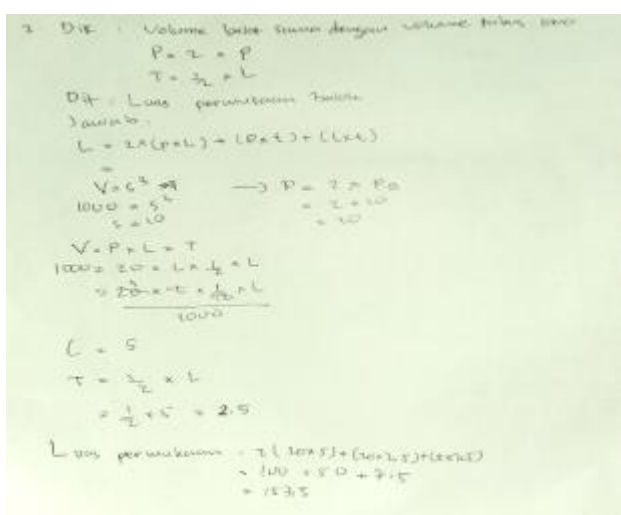 2 Dik : Volume balok sama dengan volume kubus
P = 2 × P
T = 1/2 × L
Dit : Luas permukaan balok
Jawab :
L = 2×(p×L) + (p×t) + (L×t)
=
V = s³ → P = 2 × P
1000 = s³ = 2 × 10
s = 10 = 20
V = P × L × T
1000 = 20 × L × 1/2 × L
= 20 × L × 1/2 × L
1000
L = 5
T = 1/2 × L
= 1/2 × 5 = 2.5
Luas permukaan = 2(20×5)+(20×2,5)+(5×2,5)
= 100 + 50 + 7.5
= 157,5